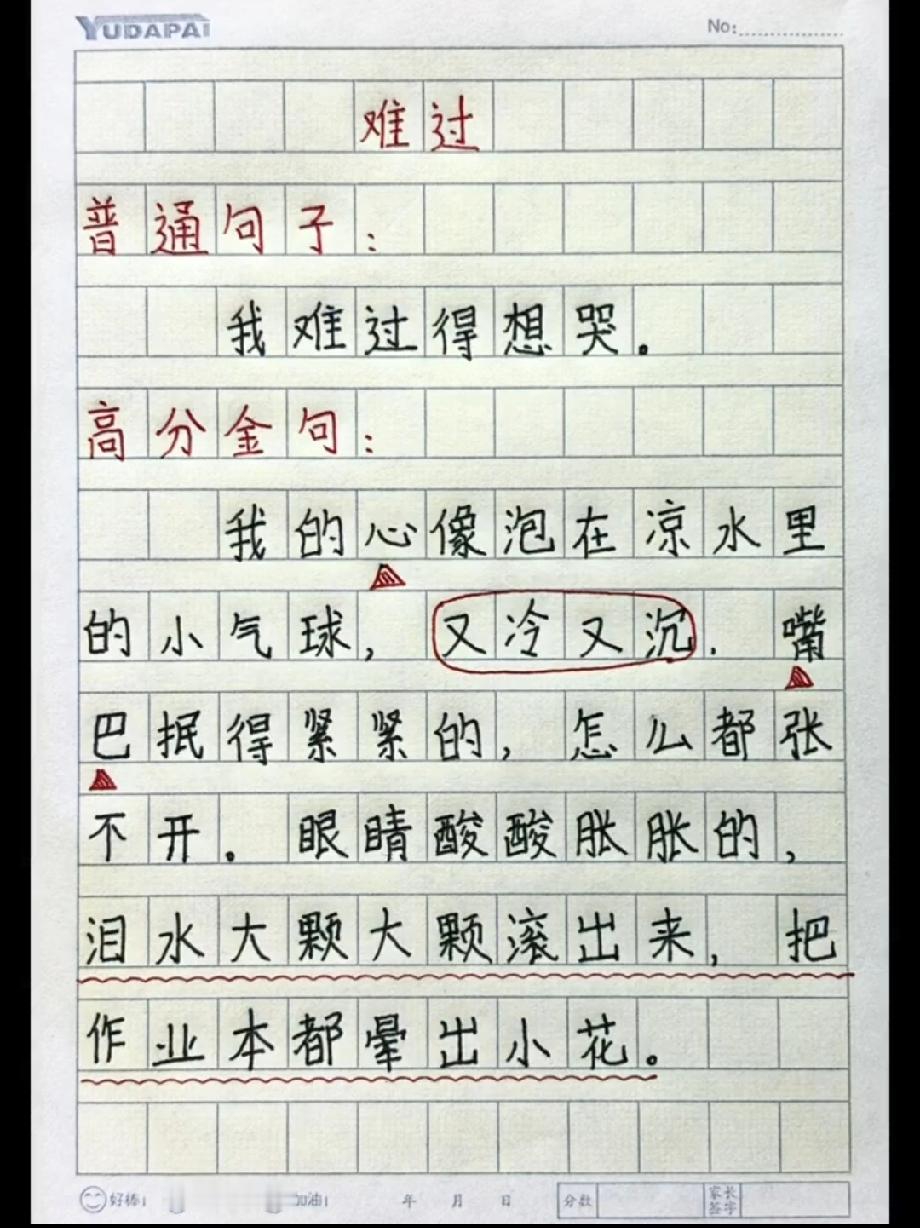 YUDAPAI
No:
难过
普通句子：
我难过得想哭。
高分金句：
我的心像泡在凉水里
的小气球，又冷又沉．嘴
巴抿得紧紧的，怎么都张
不开。眼睛酸酸胀胀的，
泪水大颗大颗滚出来，把
作业本都晕出小花。
好棒！ 加油！ 年 月 日 分数 家长签字